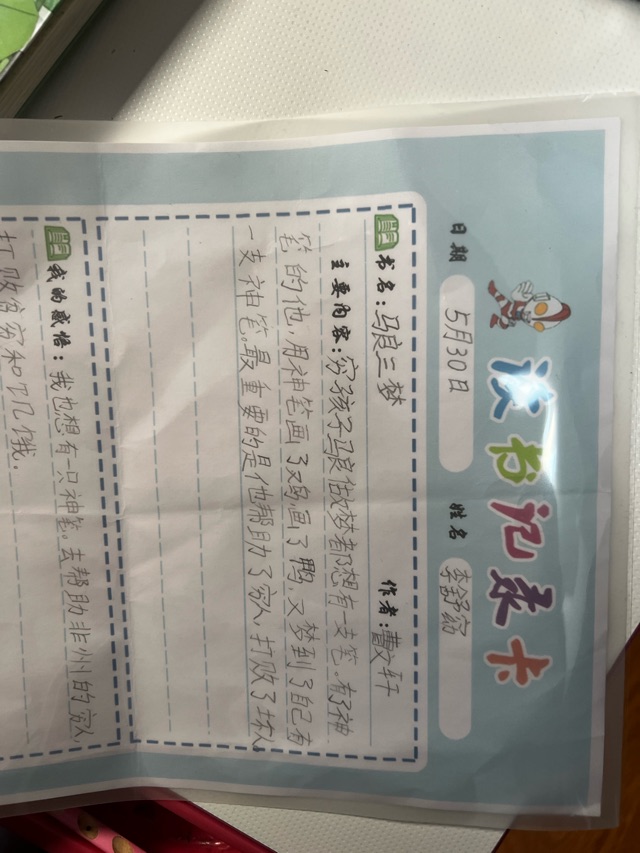 读书记录卡
日期 5月30日 姓名 李舒窈
书名:马良三梦 作者:曹文轩
主要内容:穷孩子马良做梦都想有一支笔,有了神
笔的他,用神笔画了鸡画了鸭,又梦到了自己有
一支神笔。最重要的是他帮助了穷人,打败了坏人
我的感悟:我也想有一只神笔。去帮助非州的穷人,
打败贫穷和饥饿.